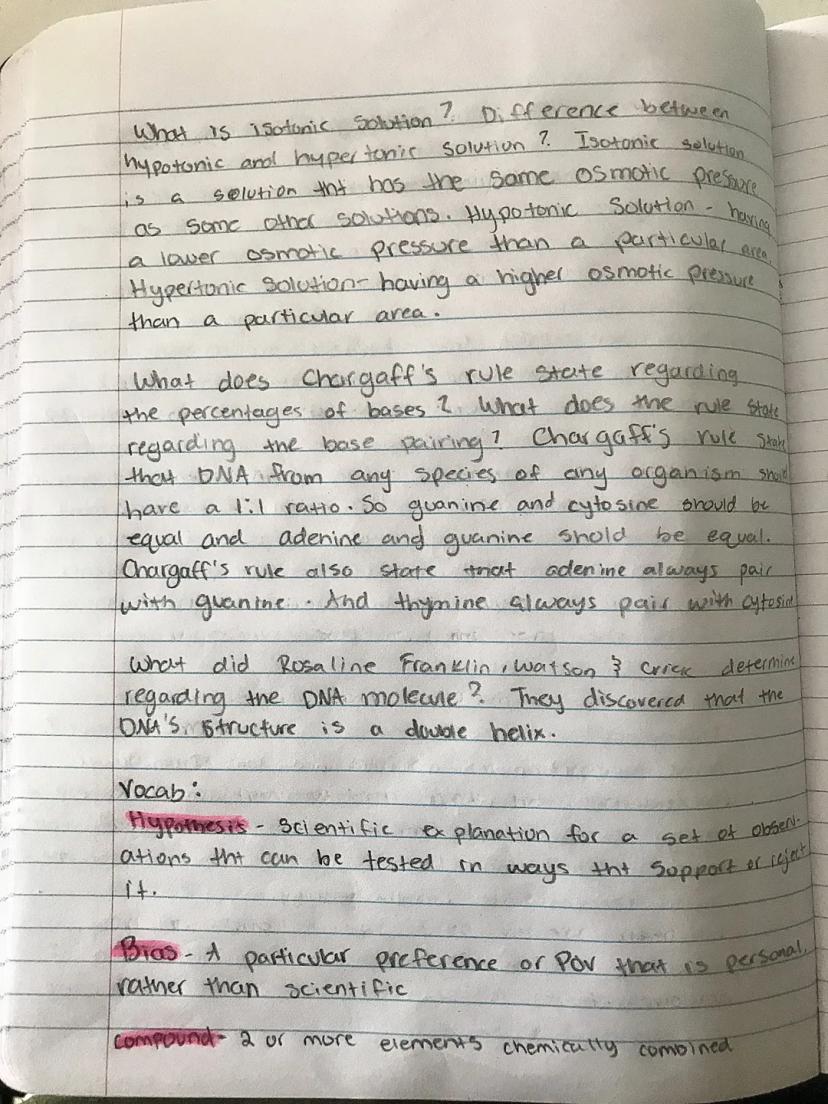 What is isotonic solution? Difference between
hypotonic and hypertonic solution? Isotonic solution
is a solution tht has the same osmotic pressure
as some other solutions. Hypotonic Solution - having
a lower osmotic pressure than a particular area.
Hypertonic Solution- having a higher osmotic pressure
than a particular area.
What does Chargaff's rule state regarding
the percentages of bases? What does the rule state
regarding the base pairing? Chargaff's rule state
that DNA from any species of any organism should
have a 1:1 ratio. So guanine and cytosine should be
equal and adenine and guanine shold be equal.
Chargaff's rule also state that adenine always pair
with guanine. And thymine always pair with cytosin
What did Rosaline Franklin, Watson & Crick determine
regarding the DNA molecule? They discovered that the
DNA'S structure is a double helix.
Vocab:
Hypothesis - Scientific explanation for a set of observ-
ations tht can be tested in ways tht support or reject
it.
Bias - A particular preference or POV that is personal,
rather than scientific
compound- 2 or more elements chemically combined